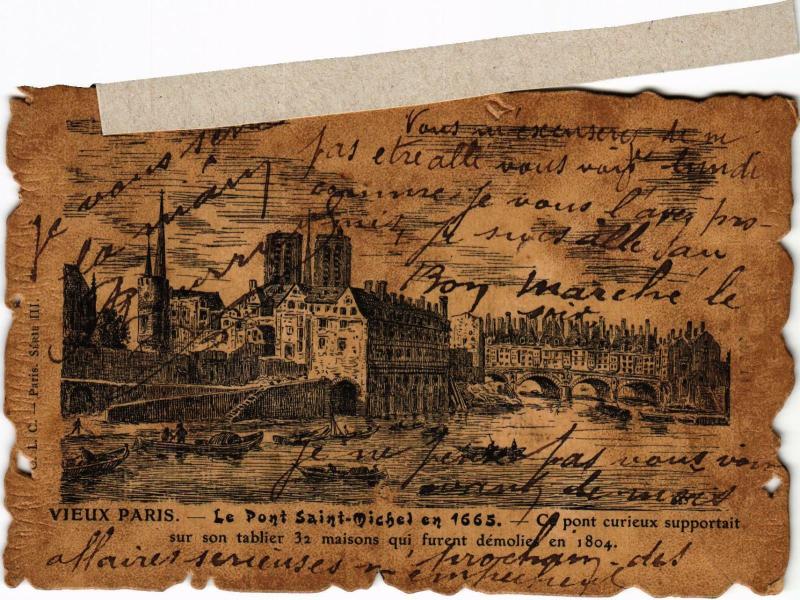 Vous m'excuserez de ne
pas etre allé vous voir lundi
comme je vous l'avez pro-
mis, je suis allé au
Bon Marché le
soir
je vous serre
la main
Pierre
je ne pense pas vous voir
avant de mars
prochain des
affaires serieuses m'empechent
C. L. C. — Paris. Série III.
VIEUX PARIS. — Le Pont Saint-Michel en 1665. — Ce pont curieux supportait
sur son tablier 32 maisons qui furent démolies en 1804.